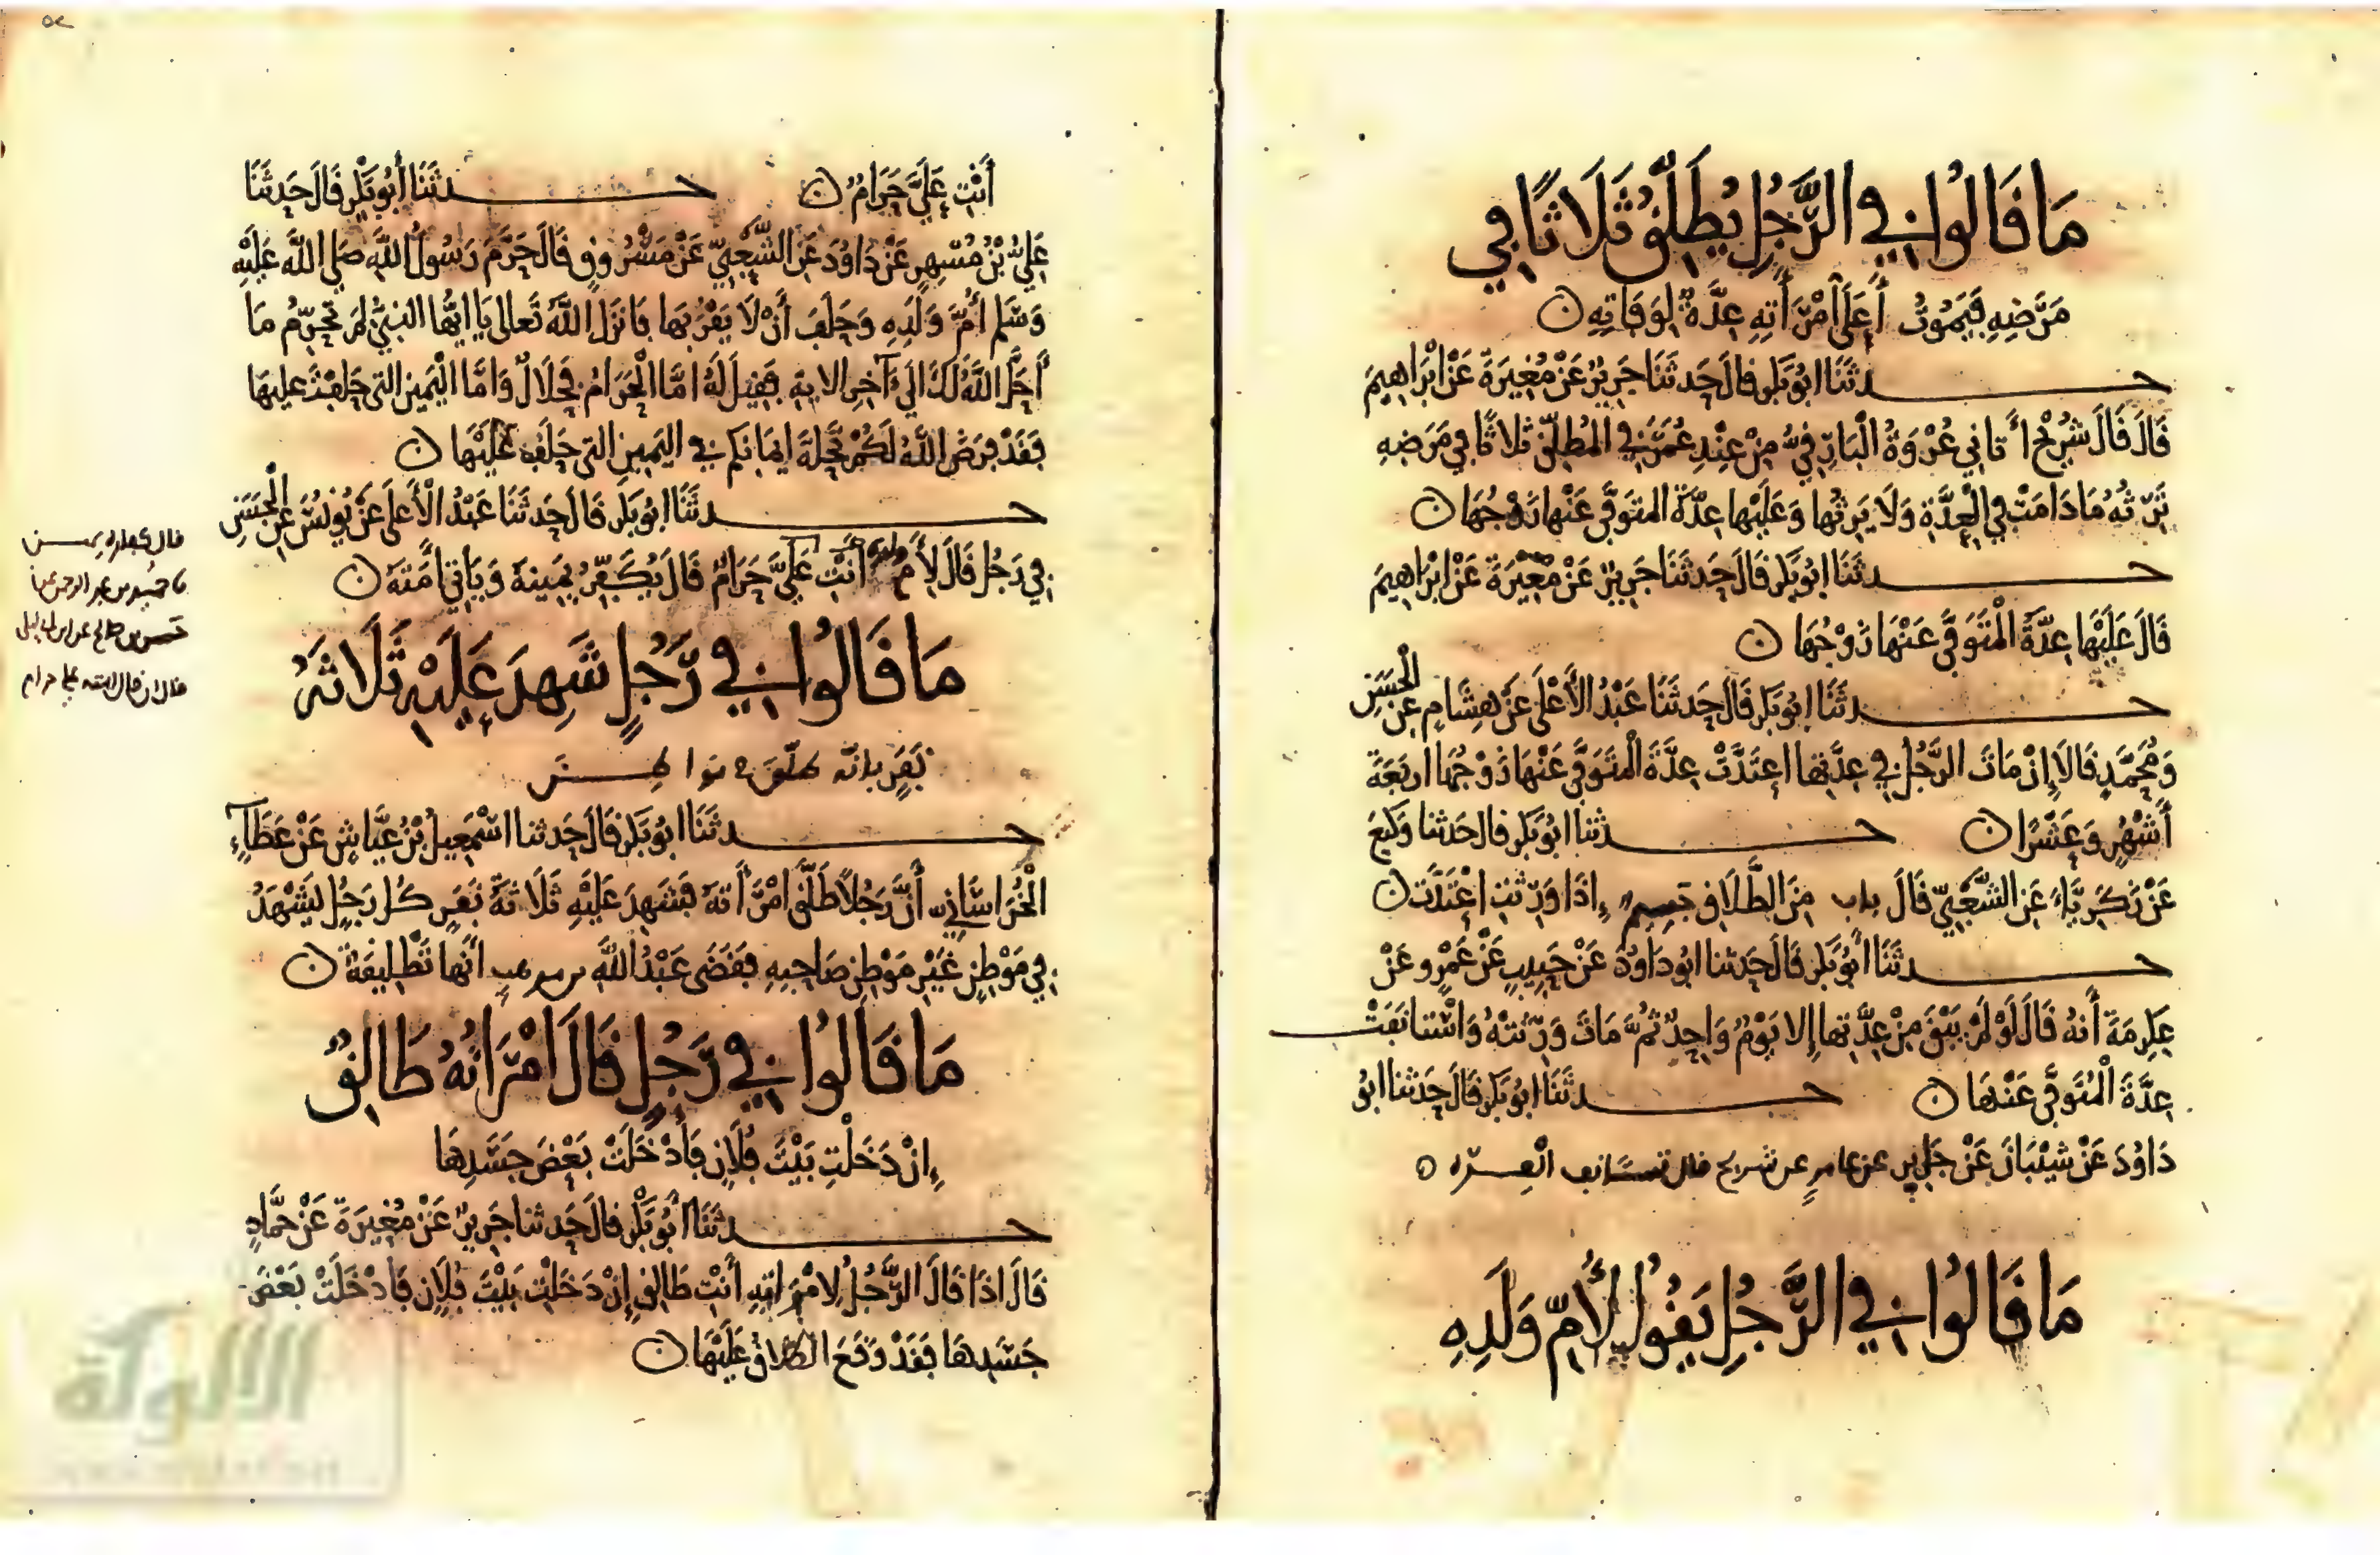 مَا قَالُوا فِي الرَّجُلِ يُطَلِّقُ ثَلَاثًا فِي
مَرَضِهِ فَيَمُوتُ أَعَلَى امْرَأَتِهِ عِدَّةٌ لِوَفَاتِهِ
حدثَنَا ابُو بَكْرٍ قالَ حَدثَنَا جَرِيرٌ عَنْ مُغِيرَةَ عَنْ ابْرَاهِيمَ
قَالَ قَالَ شُرَيْحٌ أتَانِي عُرْوَةُ الْبَارِقِيُّ مِنْ عِنْدِ عُمَرَ فِي المُطَلِّقِ ثَلاثًا فِي مَرَضِهِ
تَرِثُهُ مَا دَامَتْ فِي الْعِدَّةِ وَلَا يَرِثُهَا وَعَلَيْهَا عِدَّةُ المتَوَفَّى عَنْهَا زَوْجُهَا
حدثَنَا ابُو بَكْرٍ قَالَ حَدثَنَا جَرِيرٌ عَنْ مُغِيْرَةَ عَنْ ابْرَاهِيمَ
قَالَ عَلَيْهَا عِدَّةُ الْمُتَوَفَّى عَنْهَا زَوْجُهَا
حدثَنَا ابُو بَكْرٍ قَالَ حَدثَنَا عَبْدُ الأَعْلَى عَنْ هِشَامٍ عَنِ الْحَسَنِ
وَمُحَمَّدٍ قَالَا إِنْ مَاتَ الرَّجُلُ فِي عِدَّتِهَا اعتَدَّتْ عِدَّةَ الْمُتَوَفَّى عَنْهَا زَوْجُهَا اربَعَةَ
أَشْهُرٍ وَعَشْرًا حدثنا ابُو بَكْرٍ قالَ حَدثنا وَكِيعٌ
عَنْ زَكَرِيَّاءَ عَنِ الشَّعْبِيِّ قَالَ باب مِنَ الطَّلَاقِ جَسِيمٌ إِذَا وَرِثَتِ اعْتَدَّتْ
حدثَنَا أبُو بَكْرٍ قَالَ حَدثنا ابُو دَاوُدَ عَنْ حَبِيبٍ عَنْ عَمْرٍو عَنْ
عِكْرِمَةَ أَنهُ قَالَ لَوْ لَمْ يَبْقَ مِنْ عِدَّتِهَا إِلا يَوْمٌ وَاحِدٌ ثُمَّ مَاتَ وَرِثَتْهُ وَاسْتَانَفَتْ
عِدَّةَ الْمُتَوَفَّى عَنْهَا حدثَنَا ابُو بَكْرٍ قَالَ حَدثنا ابُو
دَاوُدَ عَنْ شَيْبَانَ عَنْ جَابِرٍ عن عامرٍ عن شريح قال تستانف العدة
مَا قَالُوا فِي الرَّجُلِ يَقُولُ لأُمِّ وَلَدِهِ
أَنْتِ عَلَيَّ حَرَامٌ حدثَنَا أَبُو بَكْرٍ قَالَ حَدثَنَا
عَلِيُّ بْنُ مُسْهِرٍ عَنْ دَاوُدَ عَنِ الشَّعْبِيِّ عَنْ مَسْرُوقٍ قَالَ حَرَّمَ رَسُولُ اللَّهِ صَلى اللَّهُ عَلَيْهِ
وَسَلم أُمَّ وَلَدِهِ وَحَلَفَ أَنْ لَا يَقْرَبَهَا فَانزَلَ اللَّهُ تَعَالَى يَا أيُّهَا النبِيُّ لِمَ تُحَرِّمُ مَا
أَحَلَّ اللَّهُ لَكَ الَى آخِرِ الايةِ فَقِيلَ لَهُ امَّا الْحَرَامُ فَحَلَالٌ وَامَّا الْيَمِينُ التى حَلَفْتَ عَلَيهَا
فَقَدْ فَرَضَ اللَّهُ لَكُمْ تَحِلةَ ايمَانكم فِي اليَمِينِ التى حَلَفَ عَلَيْهَا
حدثَنَا ابُو بَكْرٍ قَالَ حَدثَنَا عَبْدُ الْأَعلَى عَنْ يُونُسَ عَنِ الْحَسَنِ
فِي رَجُلٍ قَالَ لِأُم ولده أَنْتِ عَلَيَّ حَرَامٌ قَالَ يُكَفِّرُ يَمِينَهُ وَيَاتِي أَمَتَهُ
مَا قَالُوا فِي رَجُلٍ شَهِدَ عَلَيْهِ ثَلَاثَةُ
نَفَرٍ بانه طلق
حدثَنَا ابُو بَكْرٍ قَالَ حَدثنا اسْمَعِيلُ بْنُ عَيَّاشٍ عَنْ عَطَاءٍ
الْخُرَاسَانِي أَنَّ رَجُلًا طَلَّقَ امْرَأَتَهُ فَشَهِدَ عَلَيْهِ ثَلَاثَةُ نَفَرٍ كُل رَجُلٍ يَشْهَدُ
فِي مَوْطِنٍ غَيْرِ مَوْطِنِ صَاحِبِهِ فَقَضَى عَبْدُ اللَّهِ بن موهب أَنَّهَا تَطْلِيقَةٌ
مَا قَالُوا فِي رَجُلٍ قَالَ امْرَاتُهُ طَالِقٌ
إِنْ دَخَلْتِ بَيْتَ فُلَانٍ فَأَدْخَلَتْ بَعْضَ جَسَدِهَا
حدثَنَا أَبُو بَكْرٍ قالَ حَدثنا جَرِيرٌ عَنْ مُغِيرَةَ عَنْ حَمَّادٍ
قَالَ اذَا قَالَ الرَّجُلُ لِامْرَاتِهِ أَنْتِ طَالِقٌ إِنْ دَخَلْتِ بَيْتَ فُلَانٍ فَادْخَلَتْ بَعْضَ
جَسَدِهَا فَقَدْ وَقَعَ الطَّلَاقُ عَلَيْهَا
بن عبد الرحمن عن
حسن بن صالح عن ابن ابى ليلى
قال ان قال انت على حرام
الألوكة